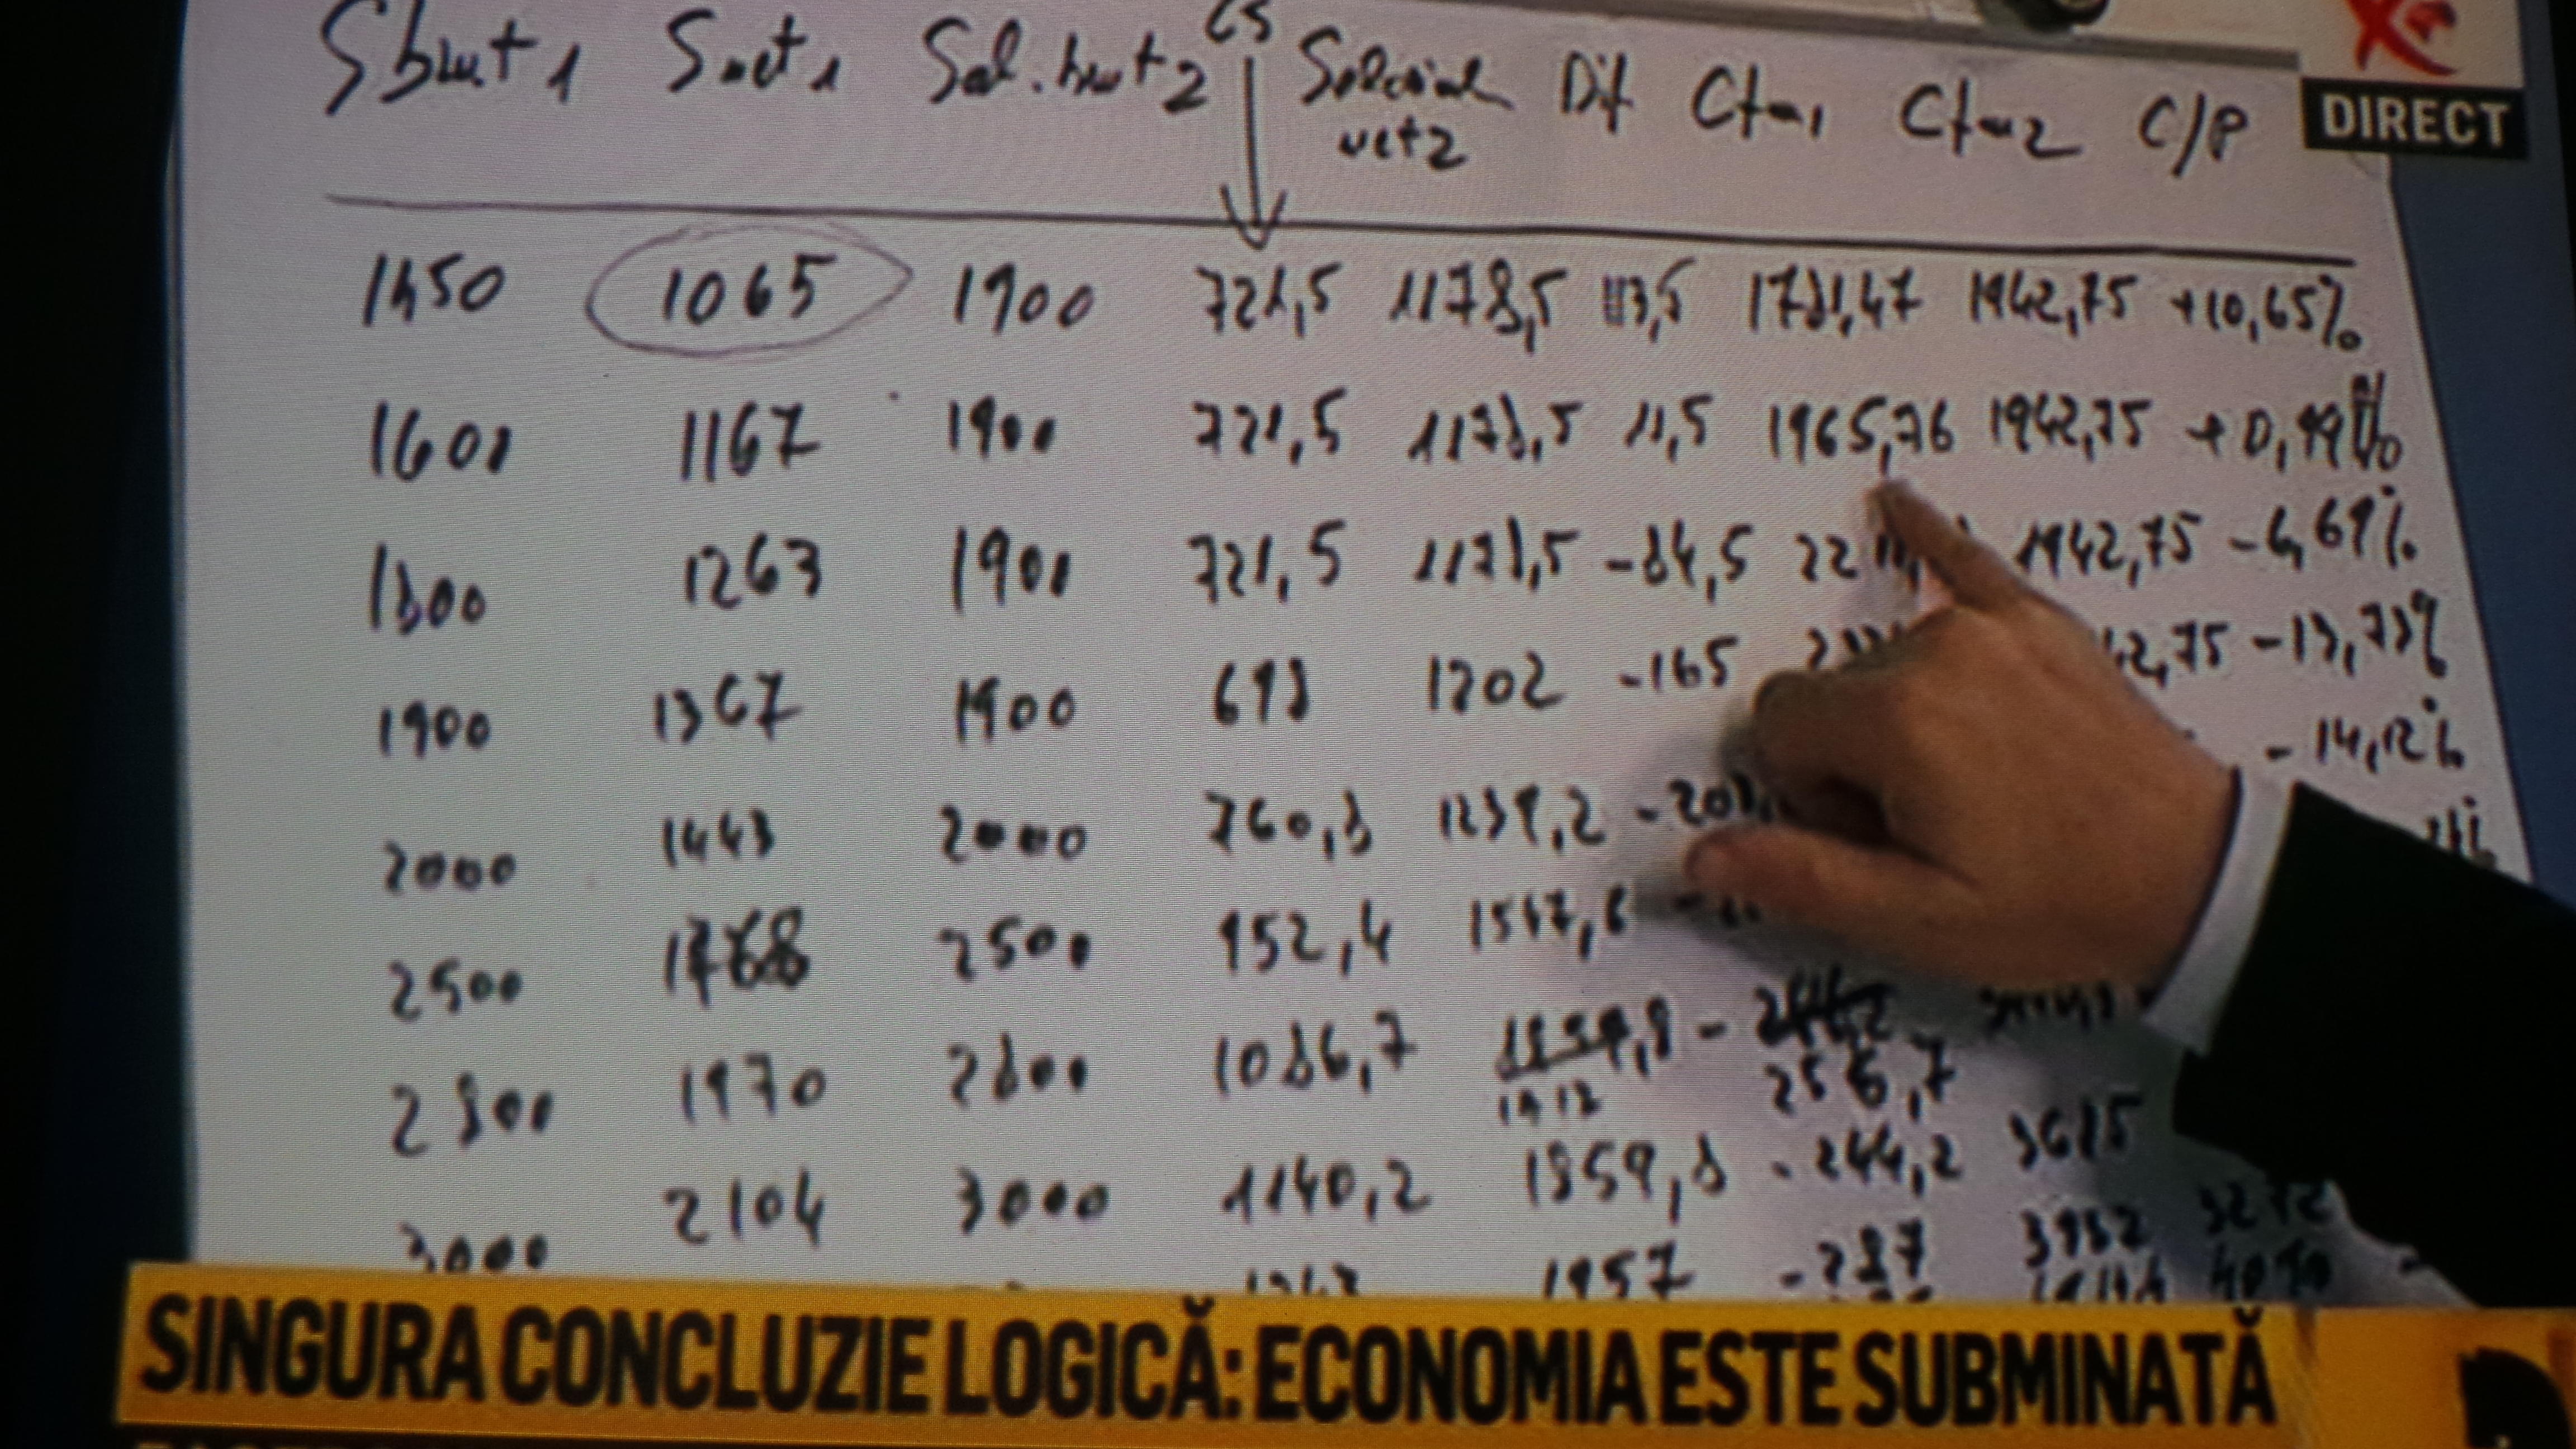 Sbrut 1 Snet 1 Sal. brut 2 CS Salariul net 2 Dif Ct-1 Ct-2 C/P
DIRECT
1450 1065 1900 721,5 1178,5 113,5 1781,47 1942,75 +10,65%
1600 1167 1900 721,5 1178,5 11,5 1965,76 1942,75 +0,99%
1800 1263 1900 721,5 1178,5 -84,5 1942,75 -6,69%
1900 1367 1900 698 1202 -165 -13,73%
2000 1443 2000 760,8 1239,2 -14,12%
2500 1768 2500 952,4 1547,6
2800 1970 2800 1086,7
256,7
3000 2104 3000 1140,2 1859,8 -244,2 3685
1957 -287 3932
SINGURA CONCLUZIE LOGICĂ: ECONOMIA ESTE SUBMINATĂ